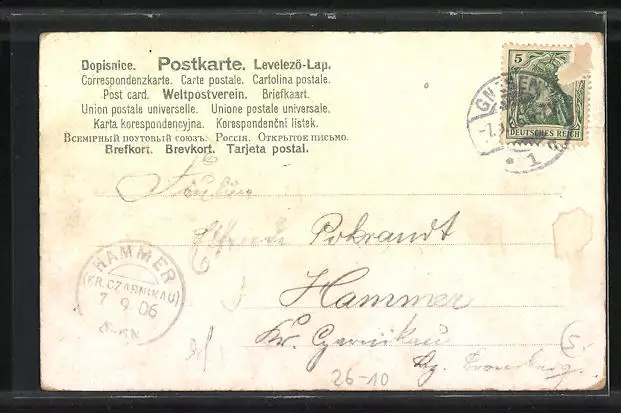 Dopisnice. Postkarte. Levelező-Lap.
Correspondenzkarte. Carte postale. Cartolina postale.
Post card. Weltpostverein. Briefkaart.
Union postale universelle. Unione postale universale.
Karta korespondencyjna. Korespondenční listek.
Всемірный почтовый союзъ. Россія. Открытое письмо.
Brefkort. Brevkort. Tarjeta postal.
5
DEUTSCHES REICH
1
Pokrandt
Hammer
Kr. Czarnikau
Bromberg.
HAMMER
(KR. CZARNIKAU)
7 9 06
26-10